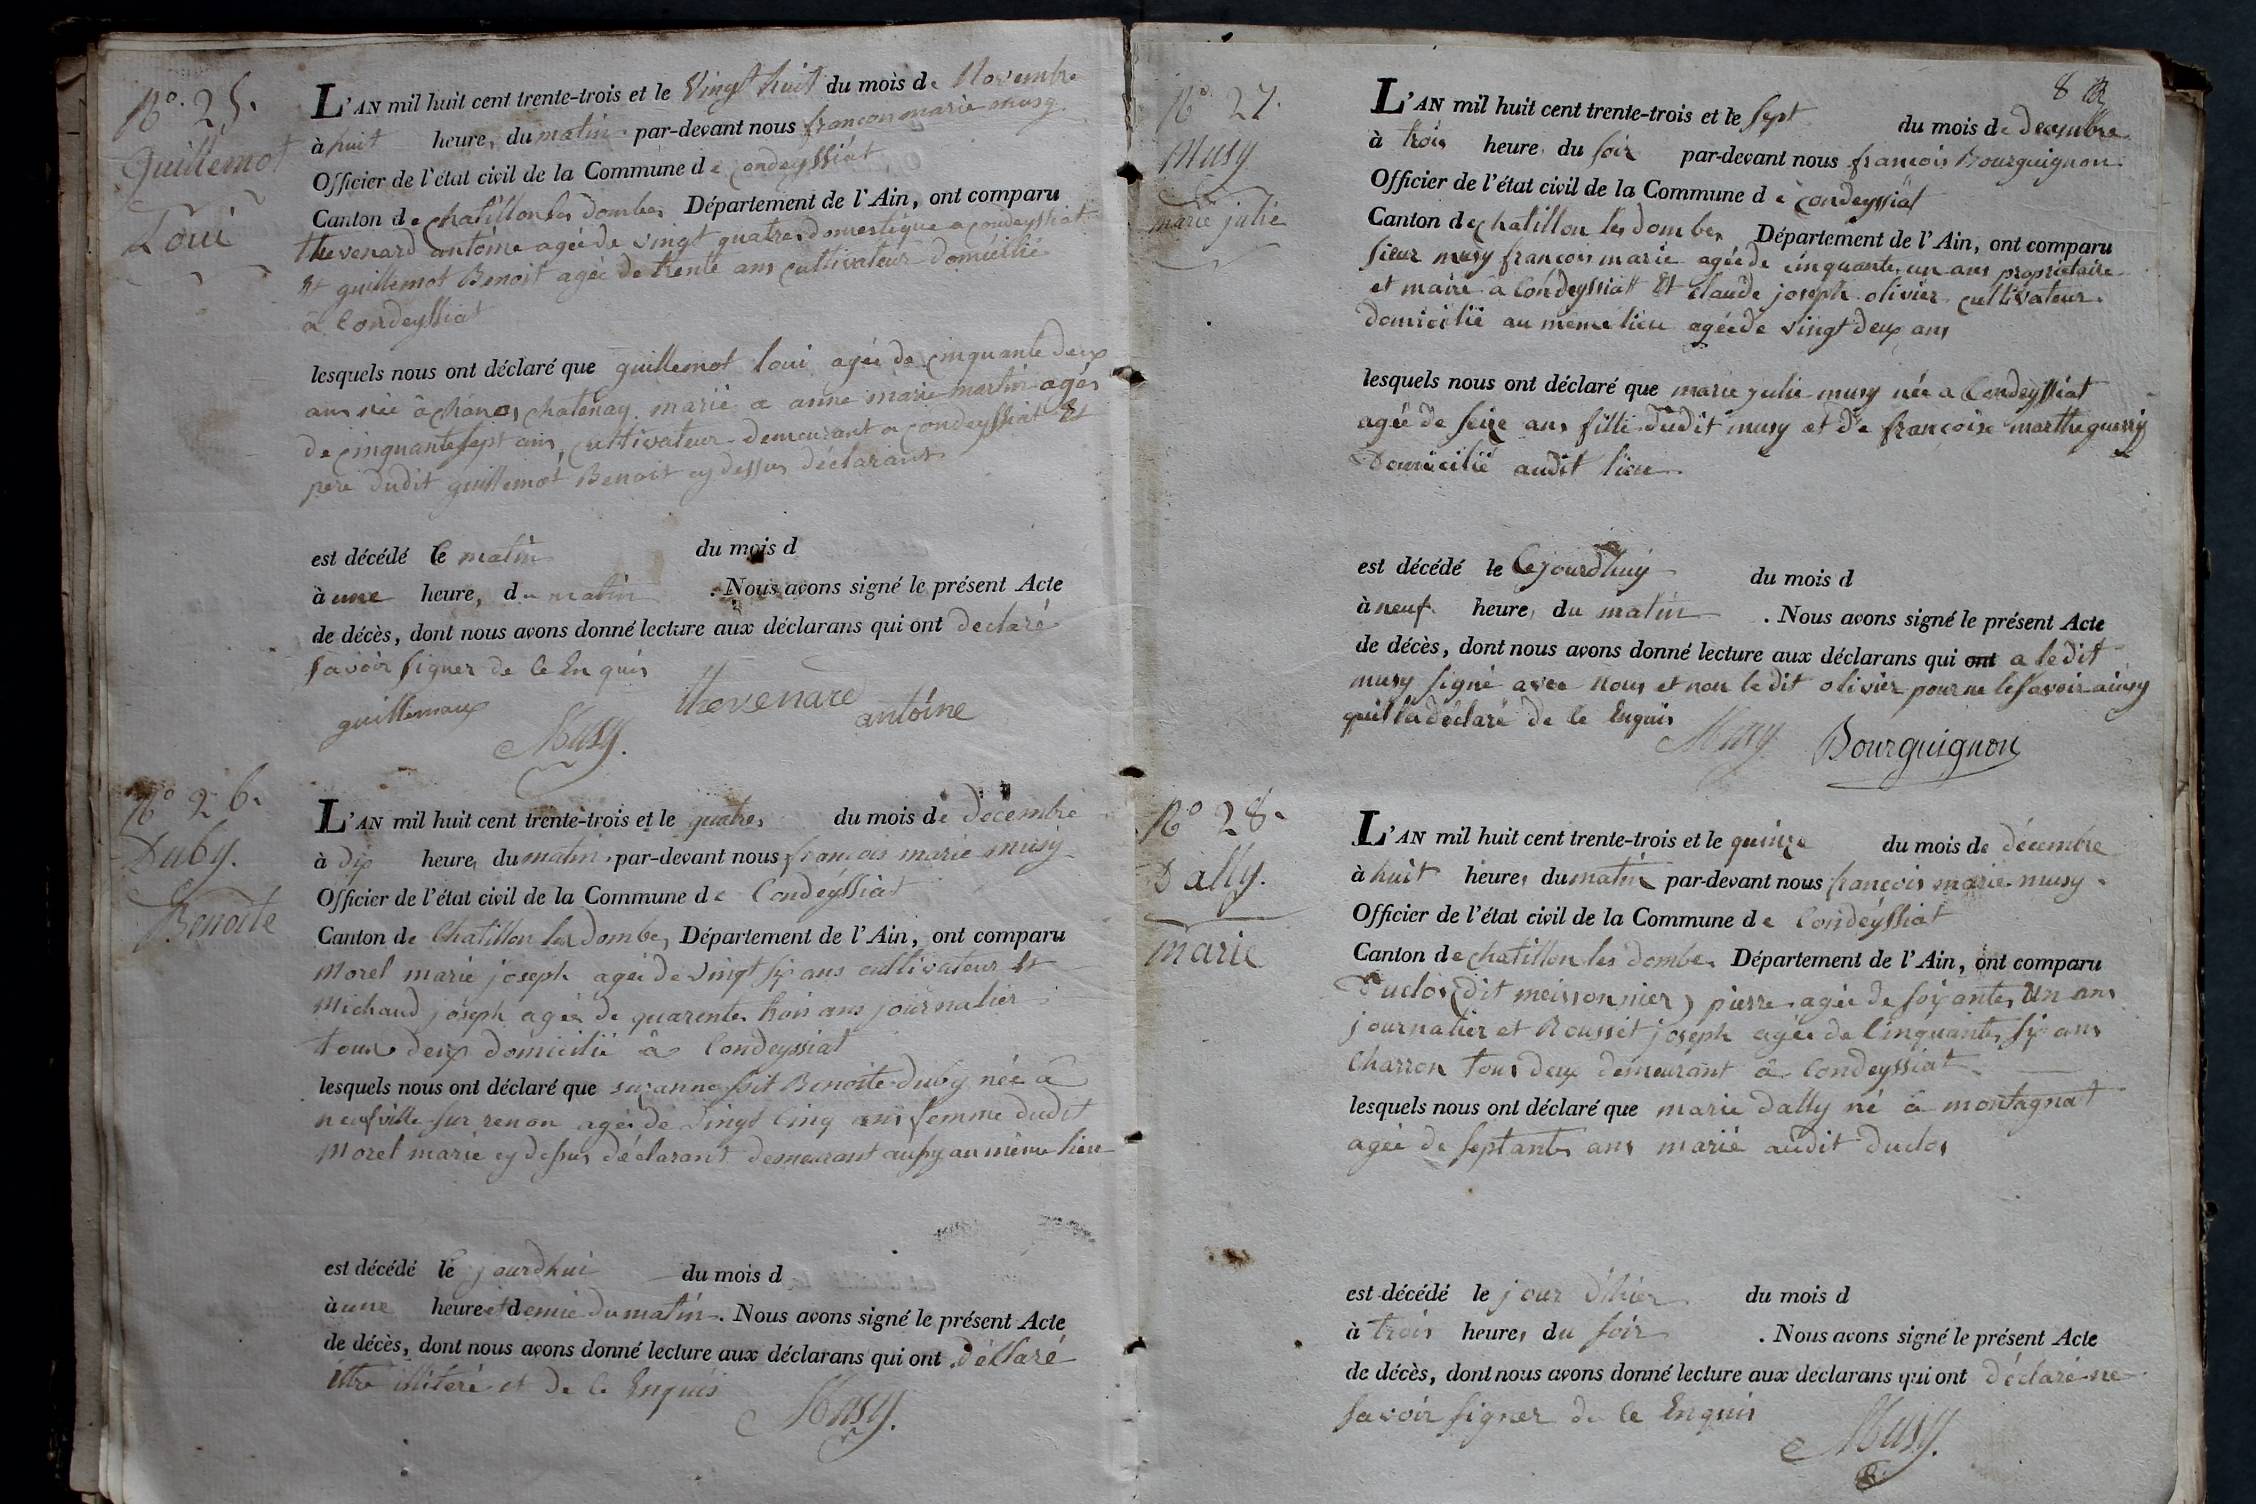 N.° 25.
Guillemot
Loui
L'AN mil huit cent trente-trois et le vingt huit du mois de Novembre
à huit heures du matin par-devant nous francon marie musy
Officier de l'état civil de la Commune de Condeyssiat
Canton de chatillon les dombes Département de l'Ain, ont comparu
thevenard antoine agée de vingt quatre domestique a condeyssiat
Et guillemot Benoit agée de trente ans cultivateur domicilié
à Condeyssiat
lesquels nous ont déclaré que guillemot loui agée de cinquante deux
ans née à chanos chatenay marié a anne marie martin agés
de cinquante sept ans, cultivateur demeurant a condeyssiat Et
pere dudit guillemot Benoit cy dessus déclarant
est décédé le matin du mois d
à une heure, du matin . Nous avons signé le présent Acte
de décès, dont nous avons donné lecture aux déclarans qui ont declaré
savoir signer de ce Enquis
guillemaux Musy. thevenard antoine
N° 26.
Duby.
Benoite
L'AN mil huit cent trente-trois et le quatre du mois de décembre
à dix heures du matin par-devant nous francois marie musy
Officier de l'état civil de la Commune de Condeyssiat
Canton de Chatillon les Dombes Département de l'Ain, ont comparu
Morel marie joseph agée de vingt six ans cultivateur Et
Michaud joseph agée de quarente trois ans journalier
tous deux domicilié à Condeyssiat
lesquels nous ont déclaré que suzanne foit Benoite Duby née a
neufville sur renon agée de vingt cinq ans femme dudit
Morel marie cy dessus déclarant demeurant aussy au même lieu
est décédé le jourdhui du mois d
à une heure et demie du matin. Nous avons signé le présent Acte
de décès, dont nous avons donné lecture aux déclarans qui ont déclaré
être illiteré et de ce Enquis
Musy.
8
N° 27.
Musy
marie julie
L'AN mil huit cent trente-trois et le sept du mois de decembre
à trois heures du soir par-devant nous francois Bourguignon
Officier de l'état civil de la Commune de Condeyssiat
Canton de chatillon les dombes Département de l'Ain, ont comparu
sieur musy francois marie agée de cinquante un ans propriétaire
et maire à Condeyssiatt Et claude joseph olivier cultivateur
domicilié au même lieu agée de vingt deux ans
lesquels nous ont déclaré que marie julie musy née a Condeyssiat
agée de seize ans fille dudit musy et de françoise marthe guerry
Domicilié audit lieu
est décédé le Cejourdhuy du mois d
à neuf heures du matin . Nous avons signé le présent Acte
de décès, dont nous avons donné lecture aux déclarans qui ont a ledit
musy signé avec nous et non le dit olivier pour ne le savoir ainsy
quil la déclaré de ce Enquis
Musy Bourguignon
N° 28.
Dally.
marie
L'AN mil huit cent trente-trois et le quinze du mois de décembre
à huit heures du matin par-devant nous françois marie musy
Officier de l'état civil de la Commune de Condeyssiat
Canton de chatillon les dombes Département de l'Ain, ont comparu
Duclos (dit meissonnier) pierre agée de soixante Un ans
journalier et Rousset joseph agée de Cinquante six ans
Charron tous deux demeurant à Condeyssiat
lesquels nous ont déclaré que marie dally né à montagnat
agée de septante ans marié audit duclos
est décédé le jour d'hier du mois d
à trois heures du soir . Nous avons signé le présent Acte
de décès, dont nous avons donné lecture aux déclarans qui ont déclaré ne
savoir signer de ce Enquis
Musy.